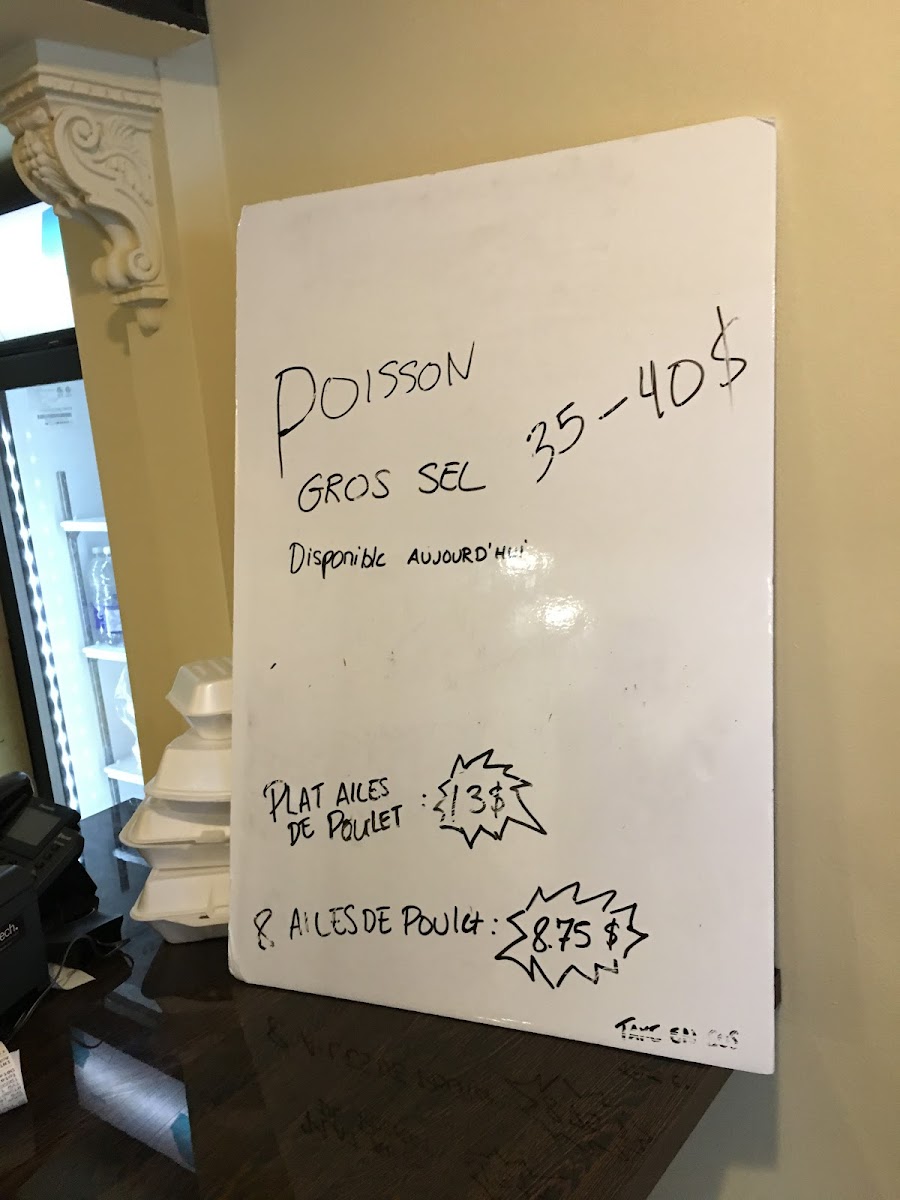 POISSON
GROS SEL 35-40$
Disponible AUJOURD'HUI
PLAT AILES
DE POULET : 13$
8 AILES DE Poulet : 8.75 $
TAXE EN SUS
ech.